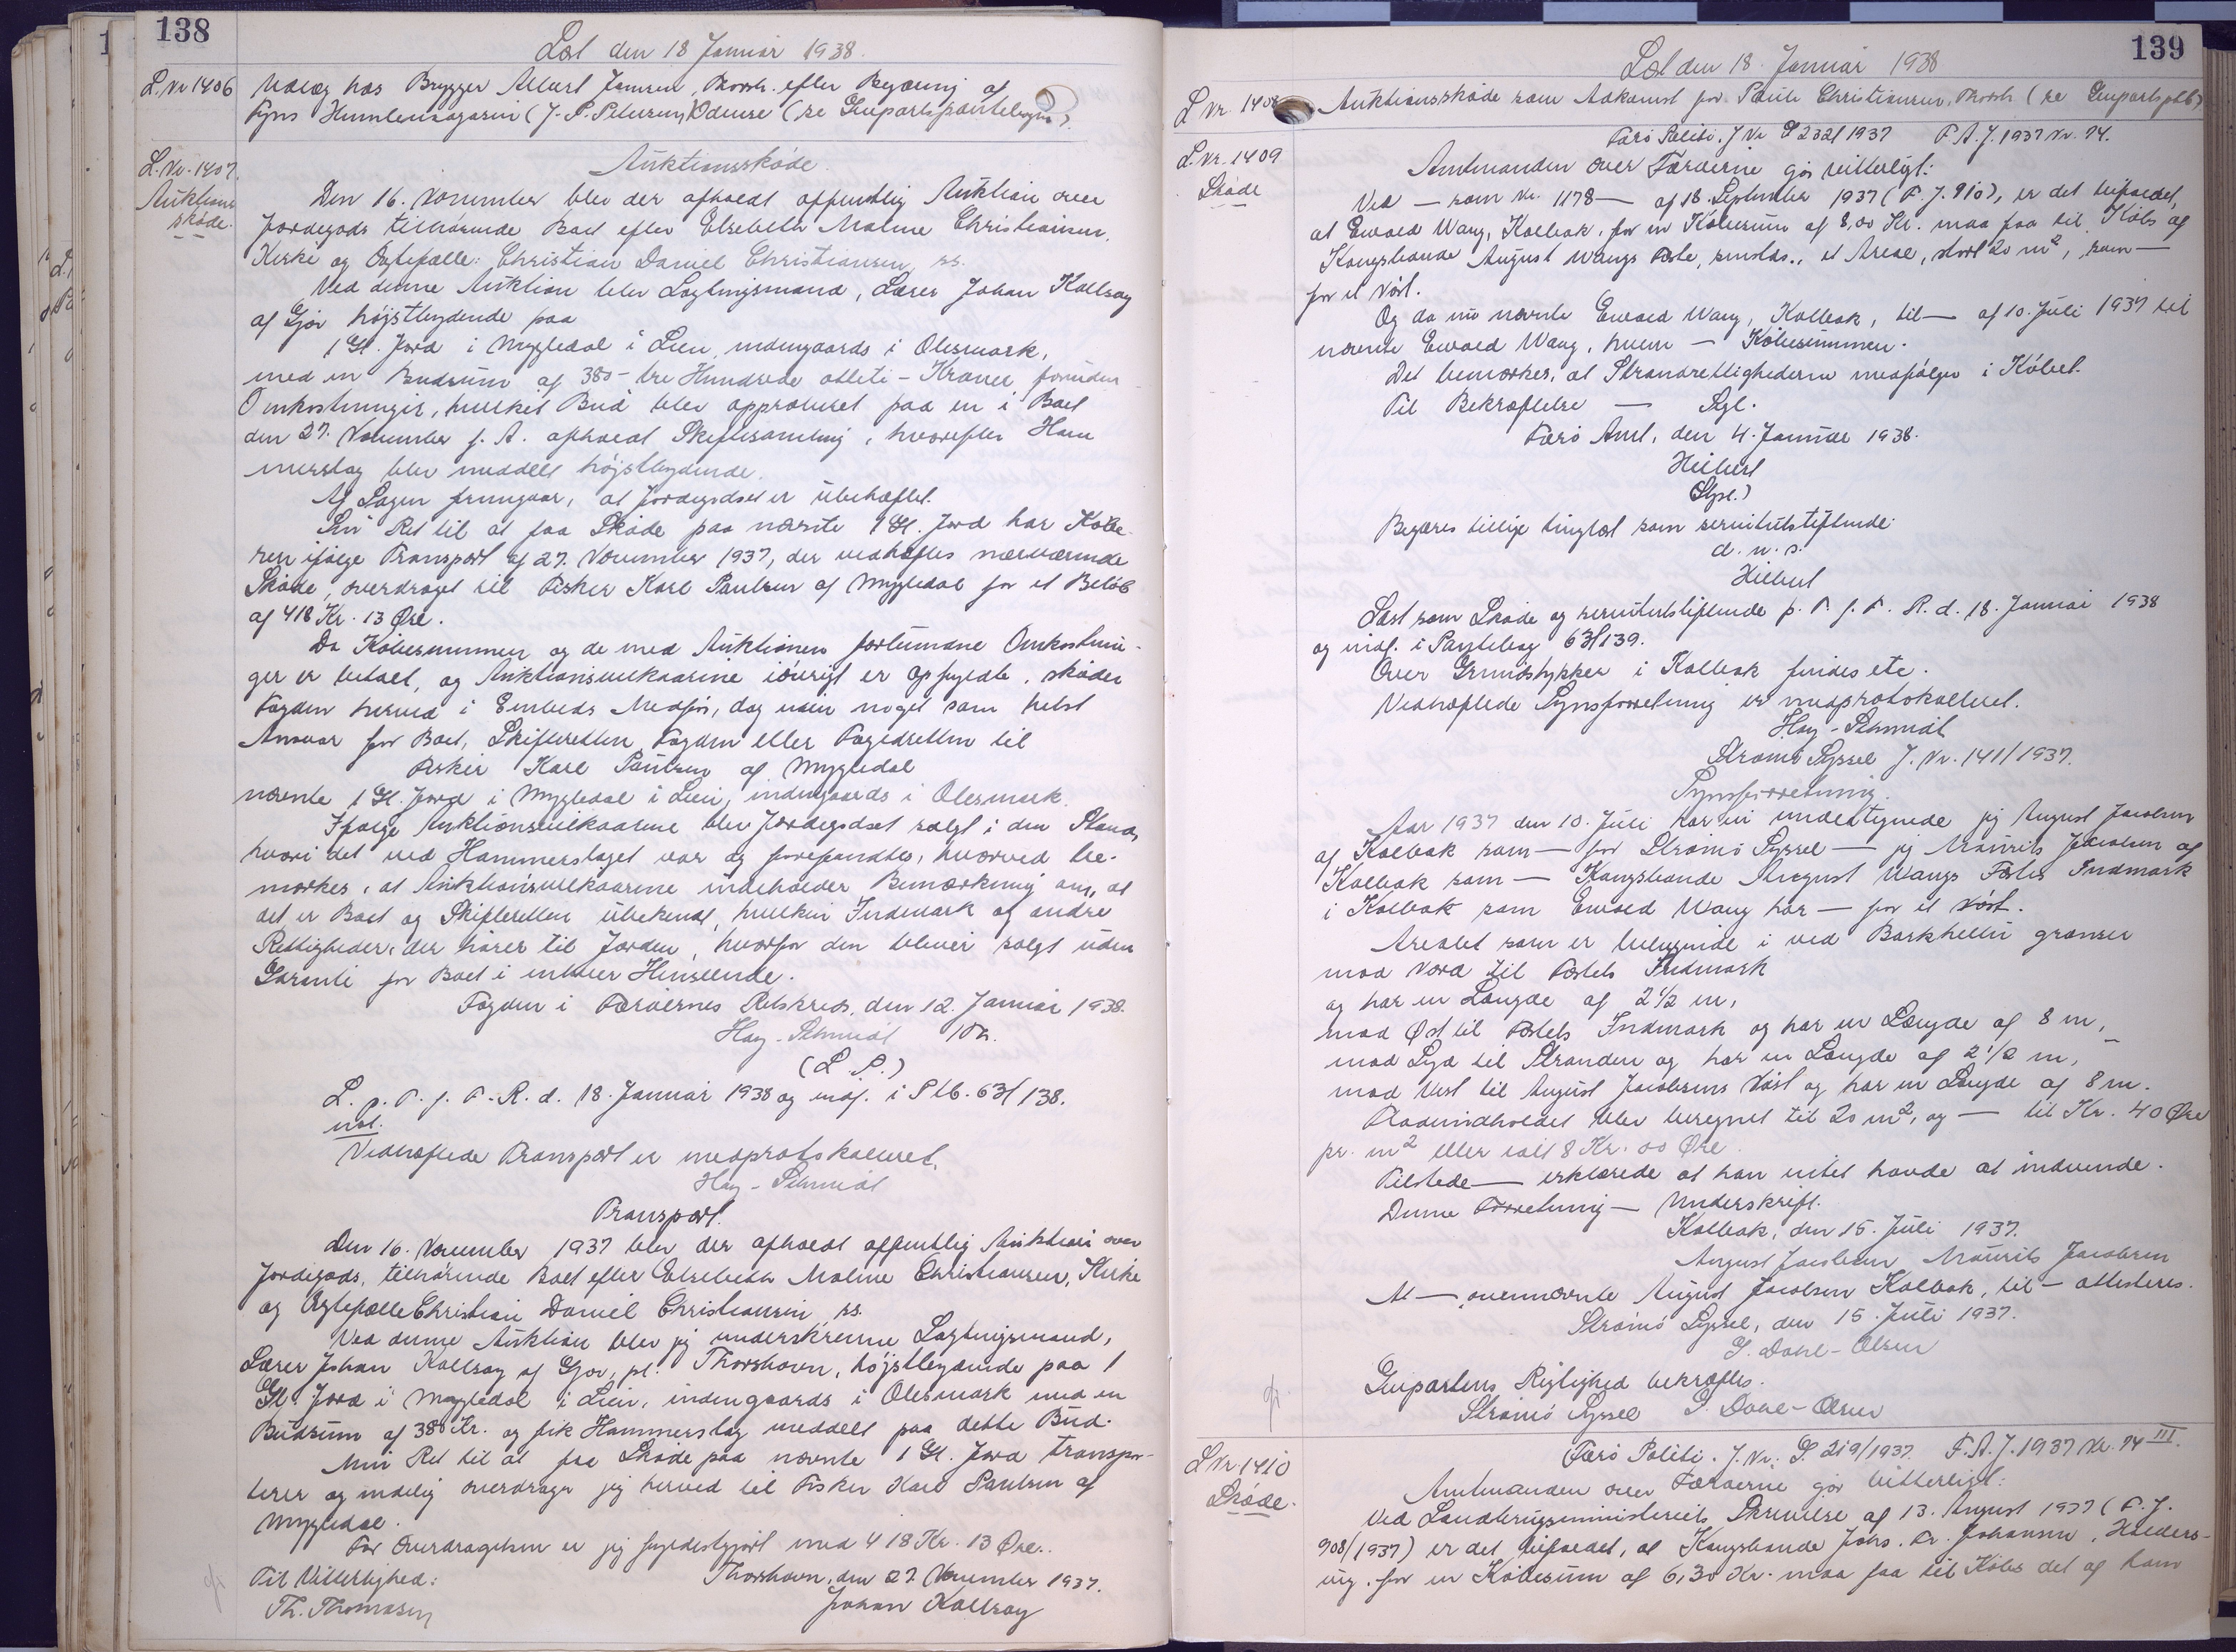 138
Læst den 18 Januar 1938.
L. Nr 1406
Udlæg hos Brygger Albert Jensen, Thorsh. efter Begæring af
Fyns Humlemagasin (J. P. Petersen) Odense (se Genpartspantebogen).
L. Nr. 1407.
Auktions
skøde.
Auktionsskøde
Den 16. November blev der afholdt offentlig Auktion over
Jordegods tilhørende Boet efter Elsebeth Maline Christiansen,
Kirke og Ægtefælle: Christian Daniel Christiansen, ss.
Ved denne Auktion blev Lagtingsmand, Lærer Johan Kallsoy
af Gjov højstbydende paa
1 Gl. Jord i Mygledal i Lien, indengaards i Olesmark,
med en Budsum af 380 – tre Hundrede otteti – Kroner foruden
Omkostninger, hvilket Bud blev approberet paa en i Boet
den 27. November f. A. afholdt Skiftesamling, hvorefter Ham
merslag blev meddelt højstbydende.
Af Sagen fremgaar, at Jordegodset er ubehæftet.
Sin Ret til at faa Skøde paa nævnte 1 Gl. Jord har Købe
ren ifølge Transport af 27. November 1937, der vedhæftes nærværende
Skøde, overdraget til Fisker Karl Paulsen af Mygledal for et Beløb
af 418 Kr. 13 Øre.
Da Købesummen og de med Auktionen forbundne Omkostnin-
ger er betalt, og Auktionsvilkaarene iøvrigt er opfyldte, skøder
Fogden herved i Embeds Medfør, dog uden noget som helst
Ansvar for Boet, Skifteretten, Fogden eller Fogedretten til
Fisker Karl Paulsen af Mygledal
nævnte 1 Gl. Jord i Mygledal i Lien, indengaards i Olesmark.
Ifølge Auktionsvilkaarene blev Jordegodset solgt i den Stand,
hvori det ved Hammerslaget var og forefandtes, hvorved be-
mærkes, at Auktionsvilkaarene indeholder Bemærkning om, at
det er Boet og Skifteretten ubekendt, hvilken Indmark og andre
Rettigheder, der hører til Jorden, hvorfor den bliver solgt uden
Garanti for Boet i enhver Henseende.
Fogden i Færøernes Retskreds, den 12. Januar 1938.
Hay-Schmidt
(L. S.)
L. p. T. f. F. R. d. 18. Januar 1938 og indf. i Ptb. 63/138.
Vedhæftede Transport er medprotokolleret.
Hay-Schmidt
Transport.
Den 16. November 1937 blev der afholdt offentlig Auktion over
Jordegods, tilhørende Boet efter Elsebeth Maline Christiansen, Kirke
og Ægtefælle Christian Daniel Christiansen ss.
Ved denne Auktion blev jeg underskrevne Lagtingsmand,
Lærer Johan Kallsoy af Gjov, pt. Thorshavn, højstbydende paa 1
Gl. Jord i Mygledal i Lien, indengaards i Olesmark med en
Budsum af 380 Kr. og fik Hammerslag meddelt paa dette Bud.
Min Ret til at faa Skøde paa nævnte 1 Gl. Jord transpor-
terer og endelig overdrager jeg herved til Fisker Karl Paulsen af
Mygledal.
For Overdragelsen er jeg fyldestgjort med 418 Kr. 13 Øre.
Thorshavn, den 27. November 1937.
Til Vitterlighed:
Johan Kallsoy
Th. Thomasen
139
Læst den 18. Januar 1938
L Nr. 1408
Auktionsskøde som Adkomst for Poule Christiansen, Thorsh (se Genpartsptb)
L. Nr. 1409
Skøde
Færø Politi. J Nr S 232/1937 F. A. J. 1937 Nr. 74.
Amtmanden over Færøerne gør vitterligt:
Ved — som Nr. 1178 — af 18 September 1937 (F. J. 910), er det bifaldet,
at Ewald Wang, Kolbak, for en Købesum af 8,00 Kr. maa faa til Købs af
Kongsbonde August Wangs Fæste, smstds., et Areal, stort 20 m², som —
for et Nøst.
Og da nu nævnte Ewald Wang, Kolbak, til — af 10. Juli 1937 til
nævnte Ewald Wang, hvem — Købesummen.
Det bemærkes, at Strandrettighederne medfølger i Købet.
Til Bekræftelse — Sgl.
Færø Amt, den 4. Januar 1938.
Hilbert
Begæres tillige tinglæst som servitutstiftende
d. u. s.
Hilbert
Læst som Skøde og servitutstiftende p. T. f. F. R. d. 18. Januar 1938
og indf. i Pantebog 63/139.
Over Grundstykker i Kolbak findes etc.
Vedhæftede Synsforretning er medprotokolleret.
Hay-Schmidt
Strømø Syssel J. Nr. 141/1937.
Synsforretning.
Aar 1937 den 10. Juli har vi undertegnede jeg August Jacobsen
af Kolbak som — for Strømø Syssel — jeg Mourits Jacobsen af
Kolbak som — Kongsbonde August Wangs Fæstes Indmark
i Kolbak som Ewald Wang har — for et Nøst.
Arealet som er beliggende i ved Barkhellu grænser
mod Nord til Fæstets Indmark
og har en Længde af 2 1/2 m,
mod Øst til Fæstets Indmark og har en Længde af 8 m,
mod Syd til Stranden og har en Længde af 2 1/2 m,
mod Vest til August Jacobsens Nøst og har en Længde af 8 m.
Fladeindholdet blev beregnet til 20 m², og — til Kr. 40 Øre
pr. m² eller ialt 8 Kr. 00 Øre.
Tilstede — erklærede at han intet havde at indvende.
Denne Forretning — Underskrift.
Kolbak, den 15. Juli 1937.
August Jacobsen Mourits Jacobsen
At — ovennævnte August Jacobsen Kolbak, til — attesteres.
Strømø Syssel, den 15. Juli 1937.
S. Dahl-Olsen
Genpartens Rigtighed bekræftes.
Strømø Syssel S. Dahl-Olsen
L Nr 1410
Skøde.
Færø Politi. J. Nr. S. 219/1937. F. A. J. 1937 Nr. 74 III.
Amtmanden over Færøerne gør vitterligt:
Ved Landbrugsministeriets Skrivelse af 13. August 1937 (F. J.
908/1937) er det bifaldet, at Kongsbonde Johs. Fr. Johansen, Haldors-
vig, for en Købesum af 6,30 Kr. maa faa til Købs det af ham